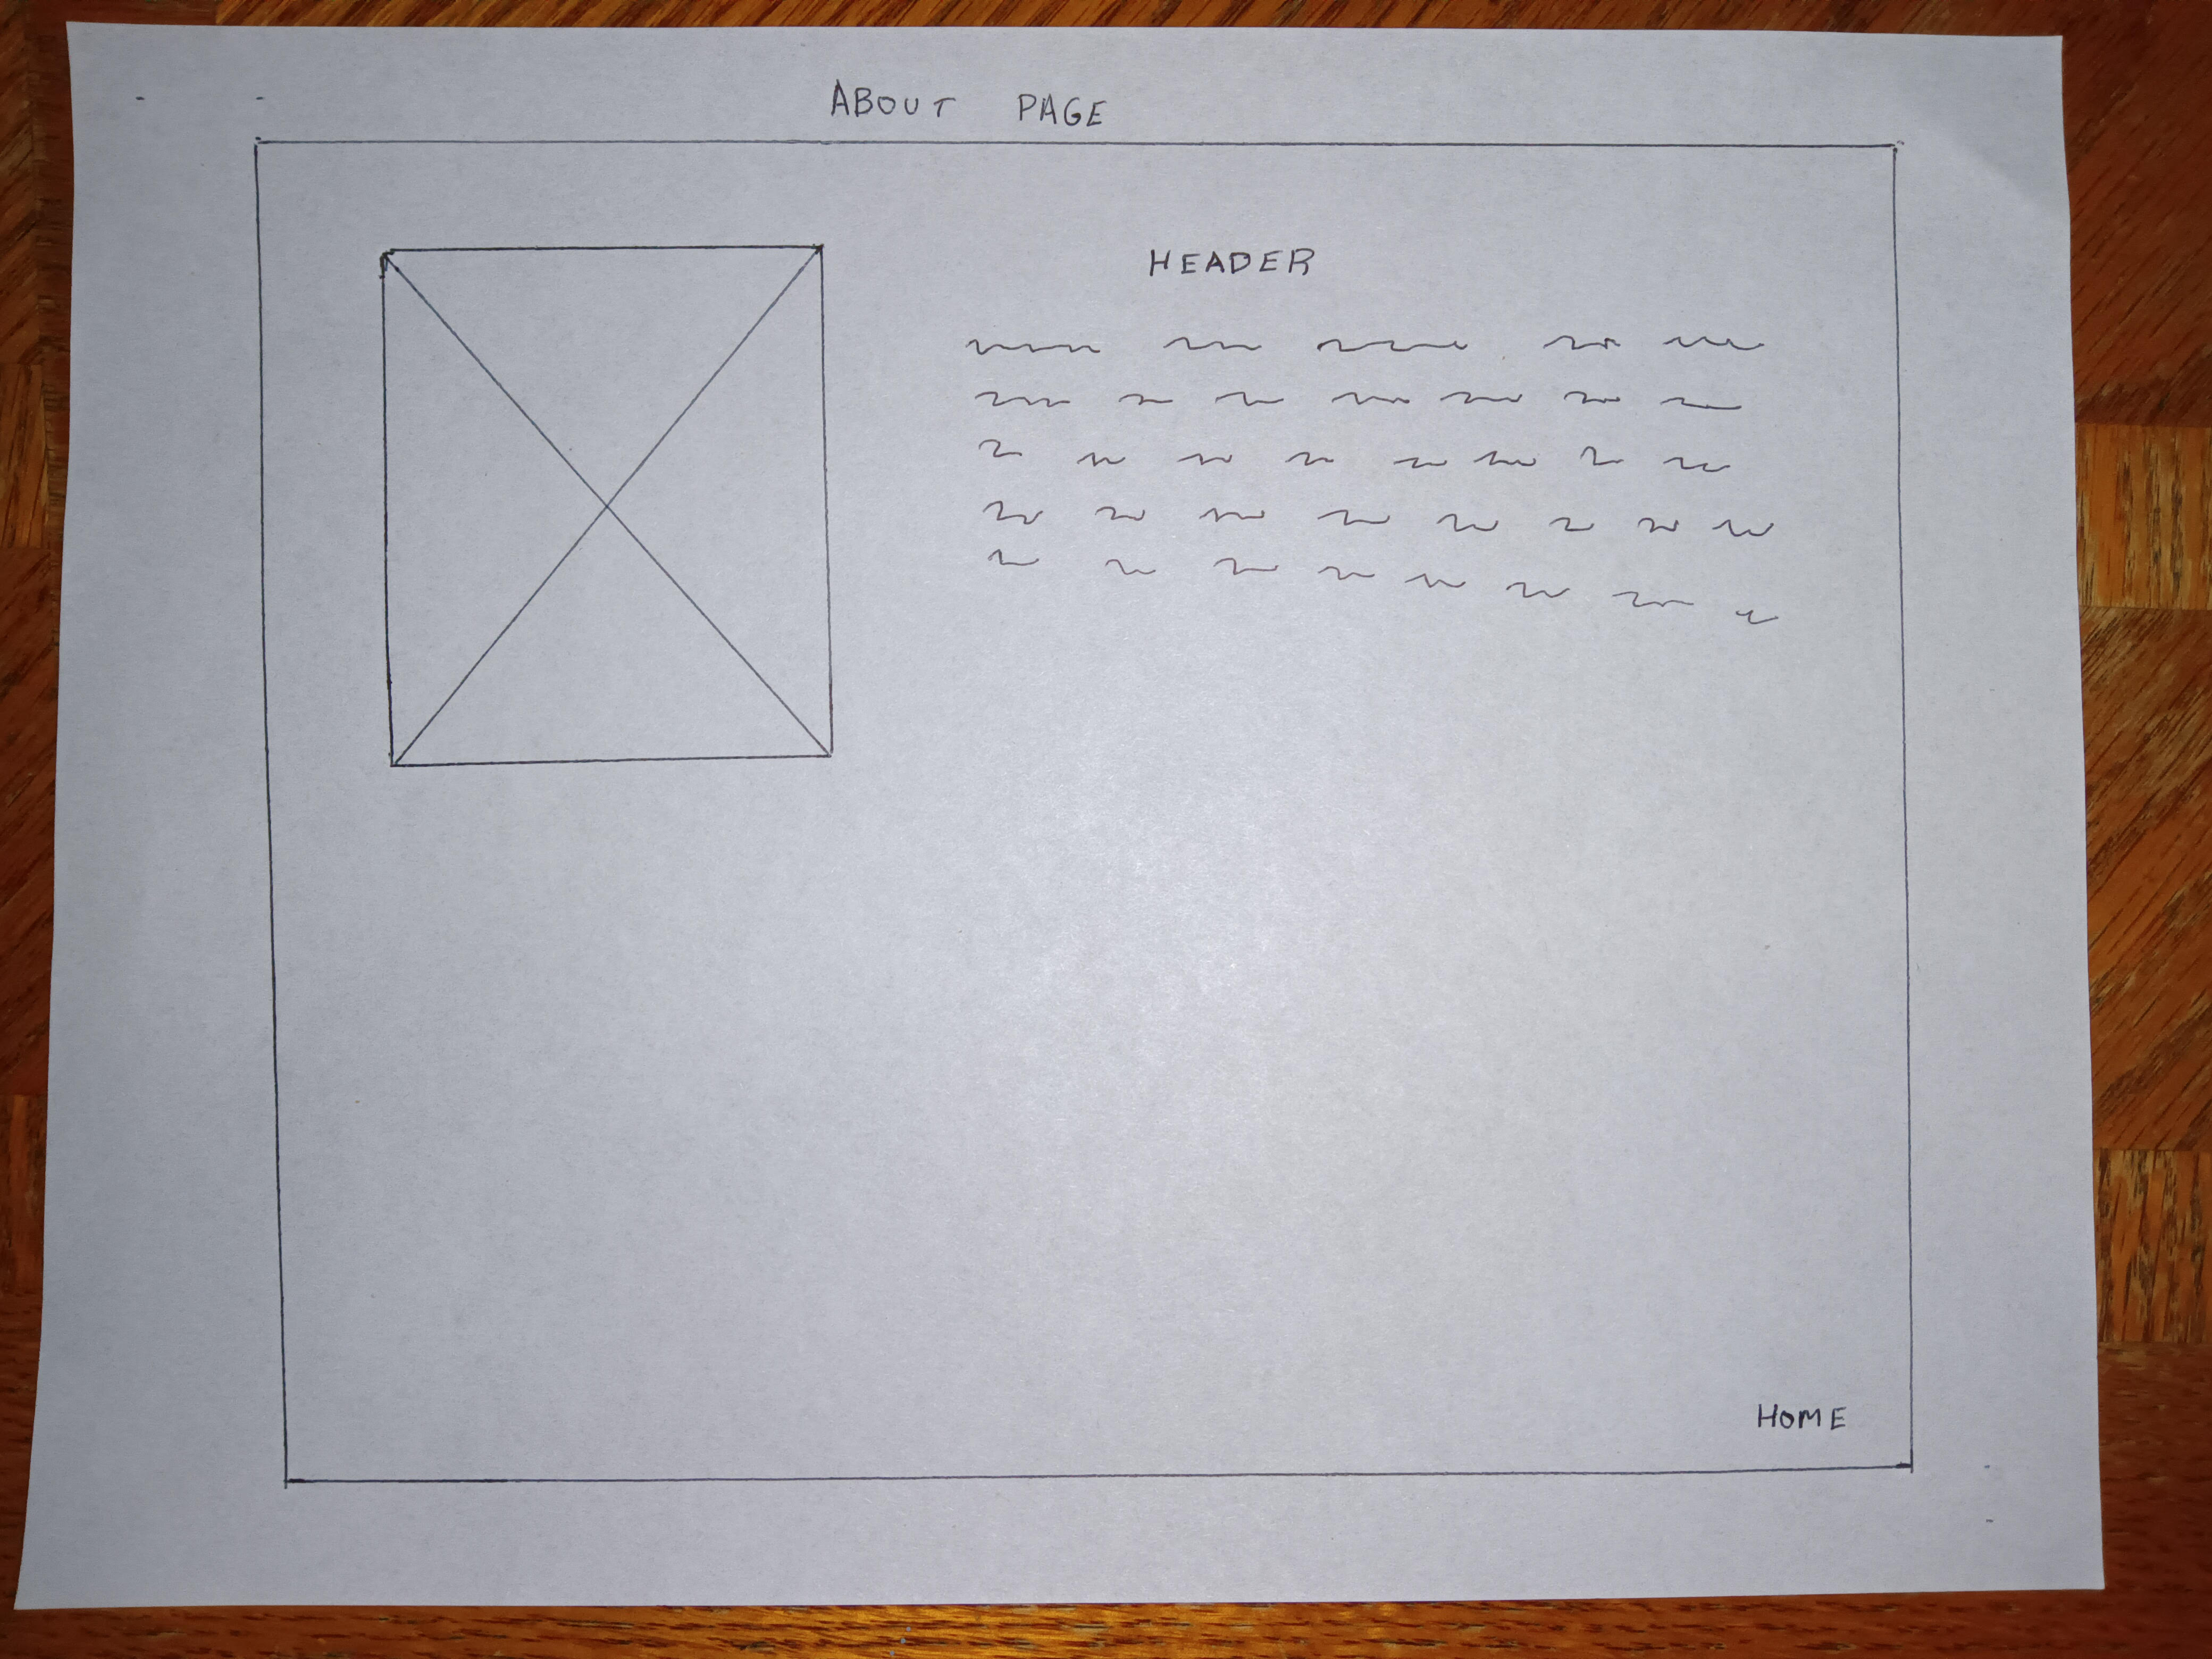 ABOUT PAGE
HEADER
HOME